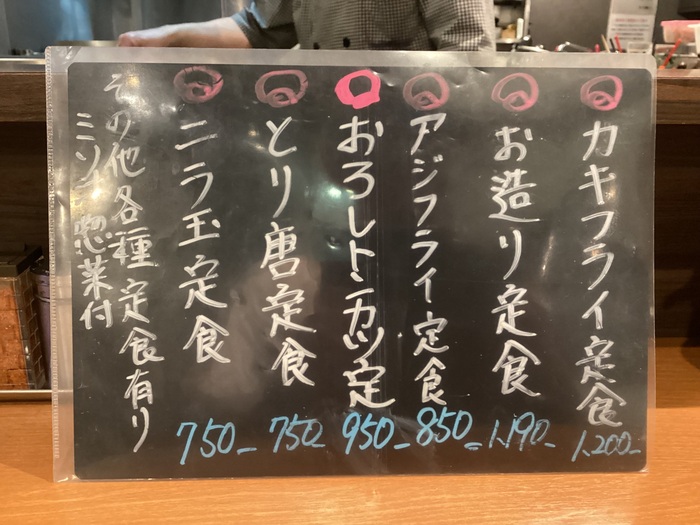 カキフライ定食 1,200-
お造り定食 1,190-
アジフライ定食 850-
おろしトンカツ定 950-
とり唐定食 750-
ニラ玉定食 750-
その他各種定食有り
ミソ汁惣菜付